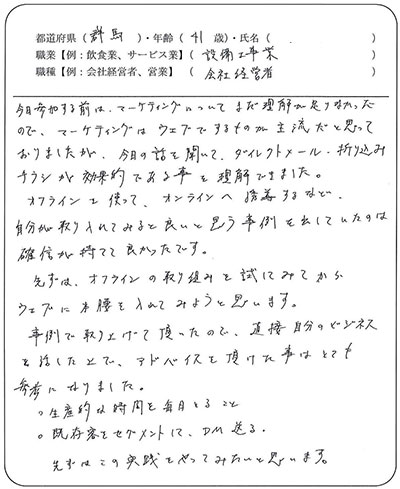 都道府県（群馬）・年齢（41 歳）・氏名（ ）
職業【例：飲食業、サービス業】（設備工事業）
職種【例：会社経営者、営業】（会社経営者）
今日参加する前は、マーケティングについてまだ理解が足りなかった
ので、マーケティングはウェブでするものが主流だと思って
おりましたが、今日の話を聞いて、ダイレクトメール・折り込み
チラシが効果的である事を理解できました。
オフラインを使って、オンラインへ誘導するなど、
自分が取り入れてみると良いと思う事例を出していたのは
確信が持てて良かったです。
先ずは、オフラインの取り組みを試にみてから
ウェブに本腰を入れてみようと思います。
事例で取り上げて頂ったので、直接自分のビジネス
を話した上で、アドバイスを頂けた事はとても
参考になりました。
○生産的な時間を毎日とること
○既存客をセグメントに、DM送る。
先ずはこの実践をやってみたいと思います。